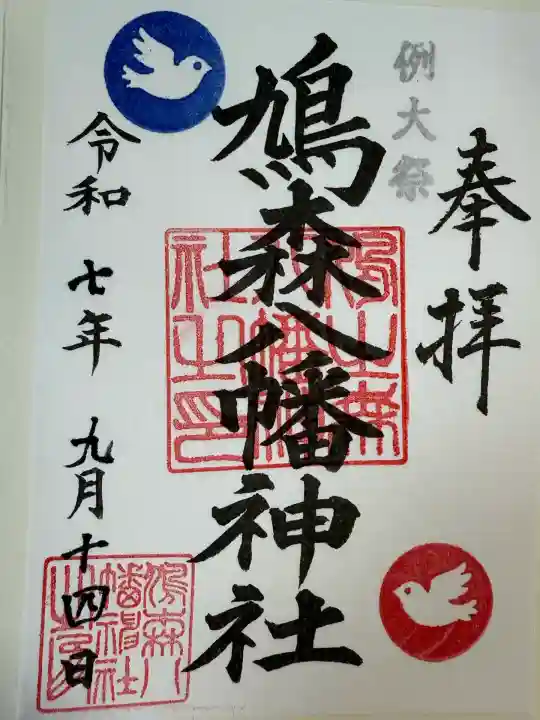 奉拝
例大祭
鳩森八幡神社
令和七年九月十四日